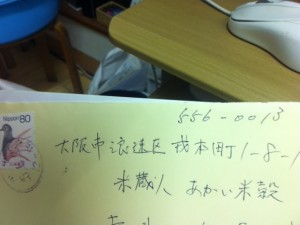 Nippon 80
556-0013
大阪市浪速区戎本町1-8-1
米蔵人 あかい米穀